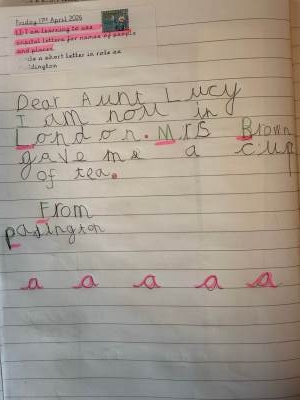 Friday 17th April 2026
L.I: I am learning to use
capital letters for names of people
and places.
a short letter in role as
Dear Aunt Lucy
I am now in
London. Mrs Brown
gave me a cup
of tea.
From
padington
a a a a a